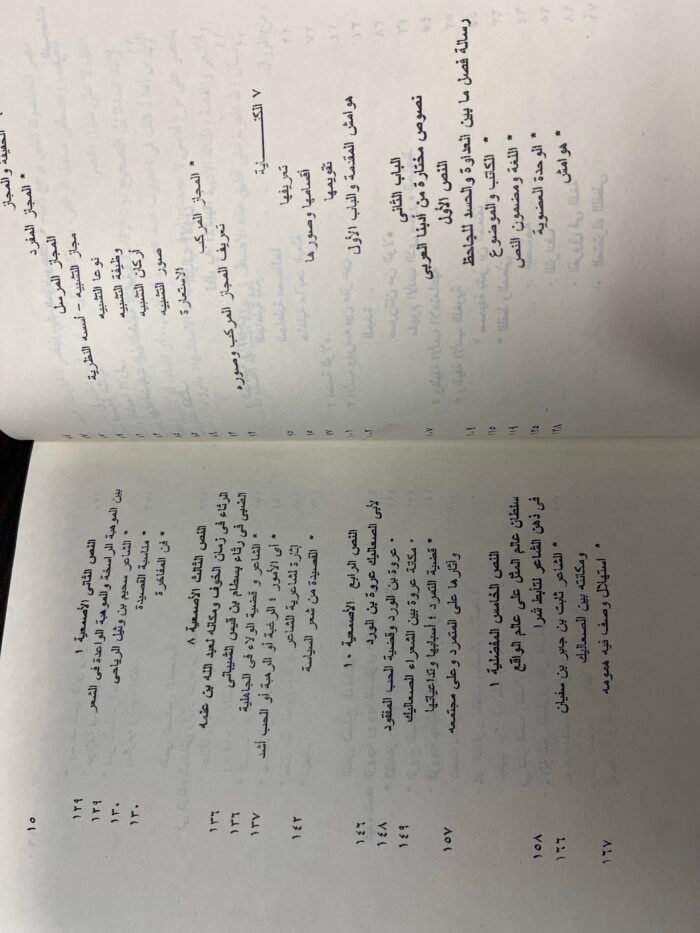 الحقيقة والمجاز
* المجاز المفرد
المجاز المرسل
مجاز التشبيه – أسسه النظرية
نوعا التشبيه
وظيفة التشبيه
أركان التشبيه
صور التشبيه
الاستعارة
* المجاز المركب
تعريف المجاز المركب وصوره
٧ الكنـــــاية
تعريفها
أقسامها وصورها
تقويمها
هوامش المقدمة والباب الأول
الباب الثانى
نصوص مختارة من أدبنا العربى ١٠٧
النص الأول
رسالة فصل ما بين العداوة والحسد للجاحظ ١٠٩
* الكاتب والموضوع ١١٥
* اللغة ومضمون النص ١١٩
* الوحدة العضوية ١٢٥
* هوامش ١٢٨
١٥
النص الثانى الأصمعية ١ ١٢٩
بين الموهبة الراسخة والموهبة الواعدة فى الشعر ١٢٩
* الشاعر سحيم بن وثيل الرياحى ١٣٠
* مناسبة القصيدة ١٣٠
* فن المفاخرة
النص الثالث الأصمعية ٨
الرثاء فى زمان الخوف ومكانه لعبد الله بن عنمه ١٣٦
الضبى فى رثاء بسطام بن قيس الشيبانى ١٣٦
* الشاعر و قضية الولاء فى الجاهلية ١٣٧
* أى الأمور ؛ الرغبة أو الرهبة أو الحب أشد
إثارة لشاعرية الشاعر ١٤٢
* القصيدة من شعر السياسة
النص الرابع الأصمعية ١٠
لأبى الصعاليك عروة بن الورد ١٤٦
* عروة بن الورد وقضية الحب المفقود ١٤٨
* مكانة عروة بين الشعراء الصعاليك ١٤٩
* قضية التمرد ؛ أسبابها وتداعياتها
وآثارها على المتمرد وعلى مجتمعه ١٥٧
النص الخامس المفضلية ١
سلطان عالم المثل على عالم الواقع
فى ذهن الشاعر لتأبط شرا ١٥٨
* الشاعر ثابت بن جابر بن سفيان ١٦٦
ومكانته بين الصعاليك
* استهلال وصف فيه همومه ١٦٧